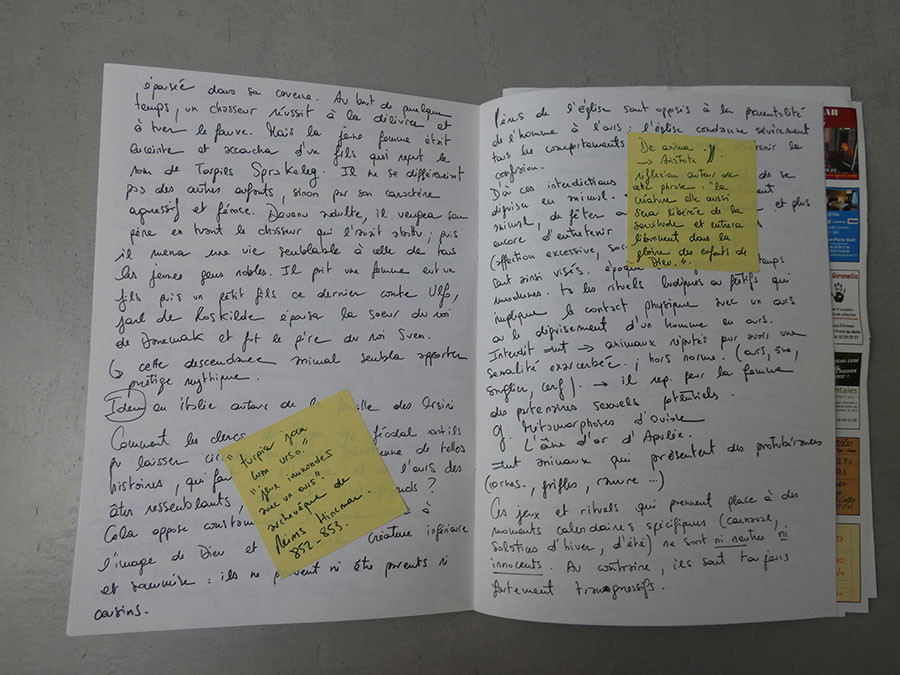 épousée dans sa caverne. Au bout de quelque
temps, un chasseur réussit à la délivrer et
à tuer le fauve. Mais la jeune femme était
enceinte et accoucha d'un fils qui reçut le
nom de Torgils Sprakeleg. Il ne se différenciait
pas des autres enfants, sinon par son caractère
agressif et féroce. Devenu adulte, il vengea son
père en tuant le chasseur qui l'avait abattu ; puis
il mena une vie semblable à celle de tous
les jeunes gens nobles. Il prit une femme eut un
fils puis un petit fils ce dernier comte Ulfo,
jarl de Roskilde épousa la soeur du roi
de Danemark et fut le père du roi Sven.
↳ cette descendance animal sembla apporter
prestige mythique.
Idem en italie autour de la famille des Orsini
Comment les clercs féodal ont ils
pu laisser de telles
histoires, qui l'ours des
êtres ressemblants,
Cela oppose à
l'image de Dieu et créature inférieure
et soumise : ils ne peuvent ni être parents ni
cousins.
"turpia joca
cum urso."
"jeux immondes
avec un ours"
archevêque de
Reims Hincmar.
852-853.
Pères de l'église sont opposés à la parentalité
de l'homme à l'ours : l'église condamne sévèrement
tous les comportements la
confusion.
D'où ces interdictions de se
déguise en animal.
animal, de fêter et plus
encore d'entretenir
(affection excessive,
sont ainsi visés. époque temps
modernes. ts les rituels ludiques ou festifs qui
implique le contact physique avec un ours
ou le déguisement d'un homme en ours.
Interdit → animaux réputés pur avoir une
sexualité exacerbée ; hors norme. (ours, âne,
sanglier, cerf). → il rep. pour la femme
des partenaires sexuels potentiels.
Métamorphoses d'Ovide
L'âne d'or d'Apulée.
animaux qui présentent des protubérances
(cornes, griffes, ...)
Ces jeux et rituels qui prennent place à des
moments calendaires spécifiques (
solstices d'hiver, d'été) ne sont ni neutres ni
innocents. Au contraire, ils sont toujours
fortement transgressifs.
De anima
→ Aristote
réflexion autour de
cette phrase : "la
créature elle aussi
sera libérée de la
servitude et entrera
librement dans la
gloire des enfants de
Dieu."
Gironella